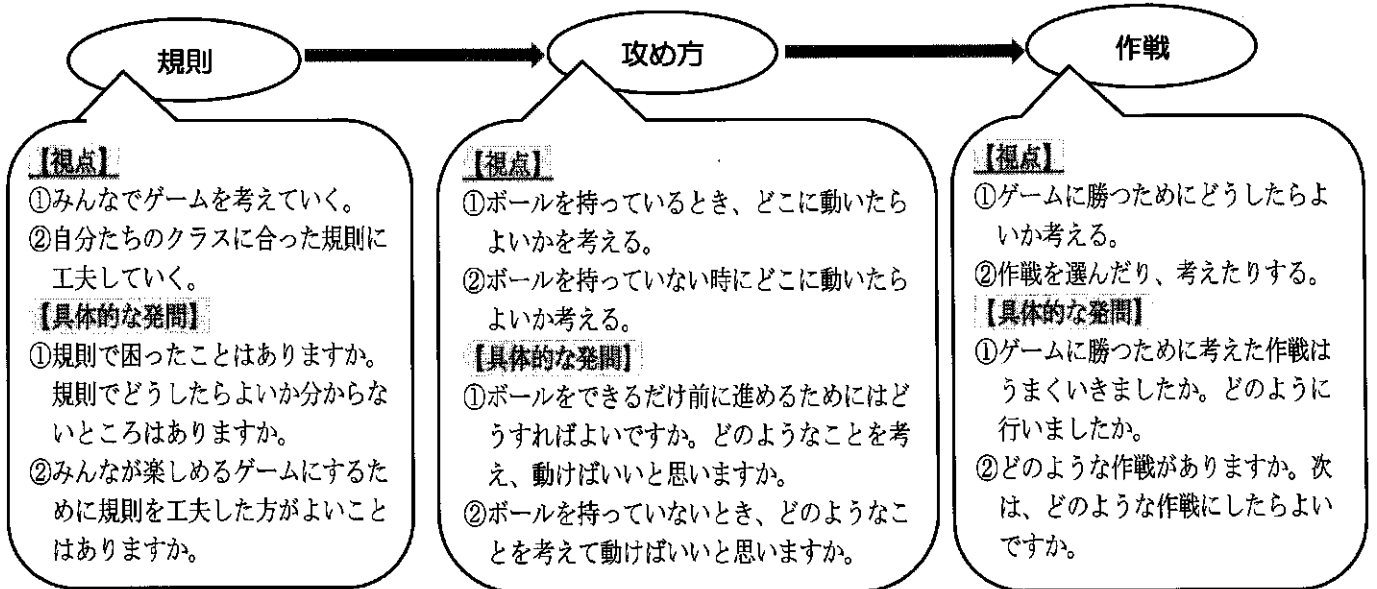 規則
攻め方
作戦
【視点】
①みんなでゲームを考えていく。
②自分たちのクラスに合った規則に
工夫していく。
【具体的な発問】
①規則で困ったことはありますか。
規則でどうしたらよいか分からな
いところはありますか。
②みんなが楽しめるゲームにするた
めに規則を工夫した方がよいこと
はありますか。
【視点】
①ボールを持っているとき、どこに動いたら
よいかを考える。
②ボールを持っていない時にどこに動いたら
よいか考える。
【具体的な発問】
①ボールをできるだけ前に進めるためにはど
うすればよいですか。どのようなことを考
え、動けばいいと思いますか。
②ボールを持っていないとき、どのようなこ
とを考えて動けばいいと思いますか。
【視点】
①ゲームに勝つためにどうしたらよ
いか考える。
②作戦を選んだり、考えたりする。
【具体的な発問】
①ゲームに勝つために考えた作戦は
うまくいきましたか。どのように
行いましたか。
②どのような作戦がありますか。次
は、どのような作戦にしたらよい
ですか。